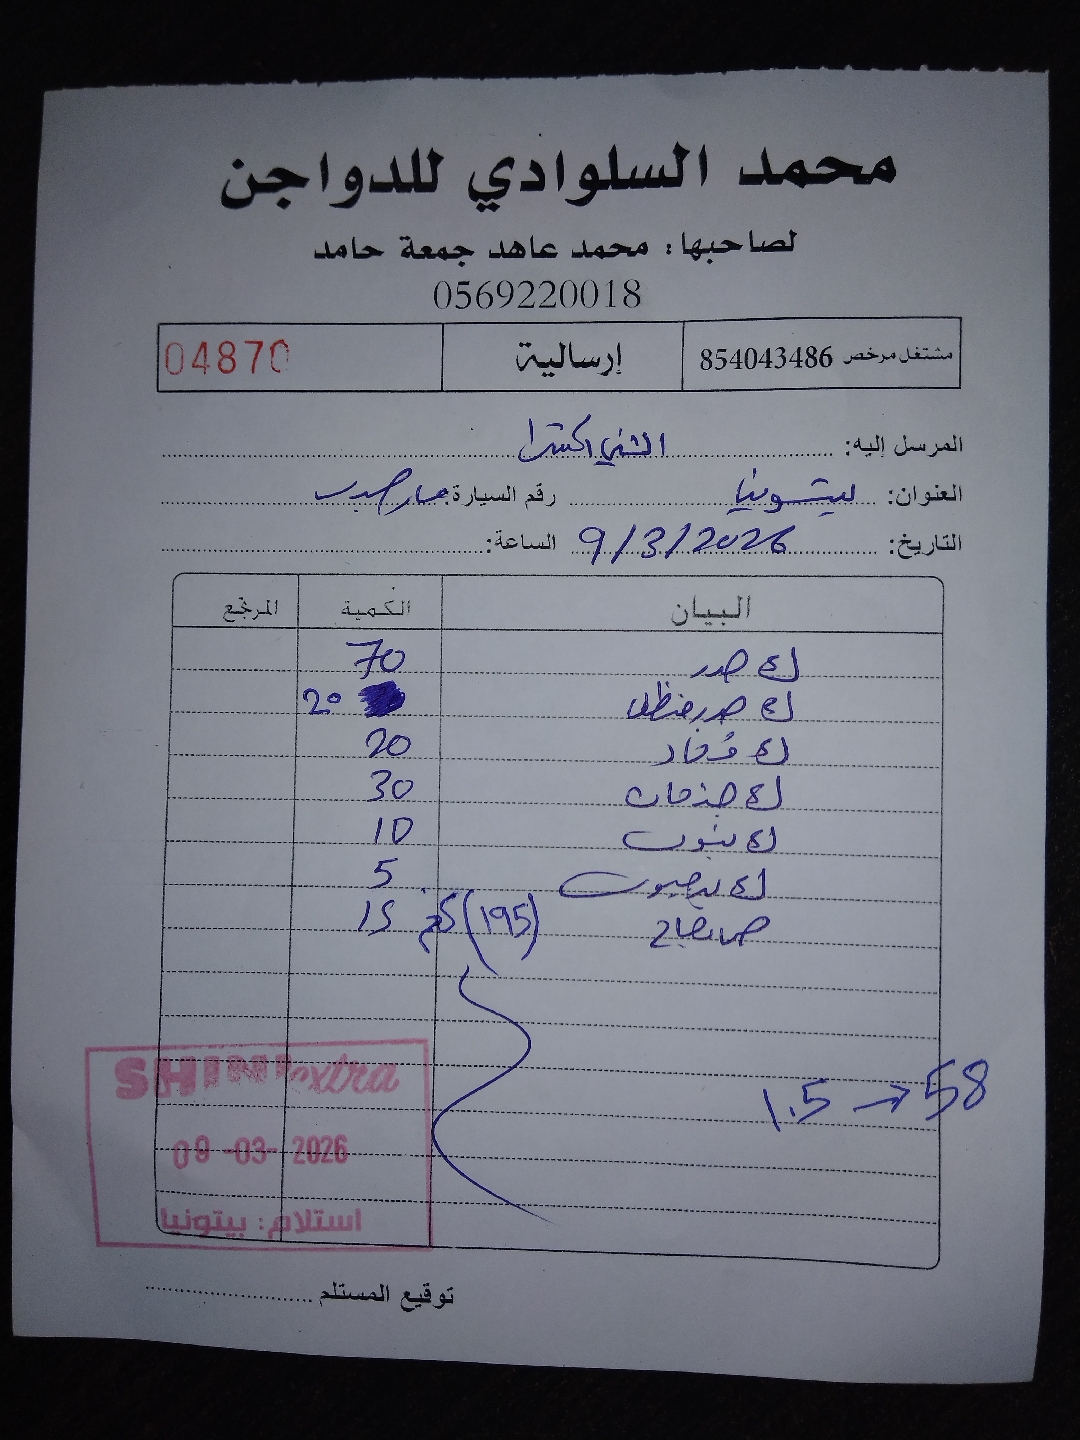 محمد السلوادي للدواجن
لصاحبها: محمد عاهد جمعة حامد
0569220018
مشتغل مرخص 854043486 إرسالية 04870
المرسل إليه: الشني اكسترا
العنوان: بيتونيا رقم السيارة:
التاريخ: 9/3/2026 الساعة:
البيان الكمية المرتجع
ك صدر 70
ك صدر 20
ك 20
ك 30
ك 10
ك 5
15 كغم (195)
1.5 → 58
SHINI extra
09-03-2026
استلام: بيتونيا
توقيع المستلم